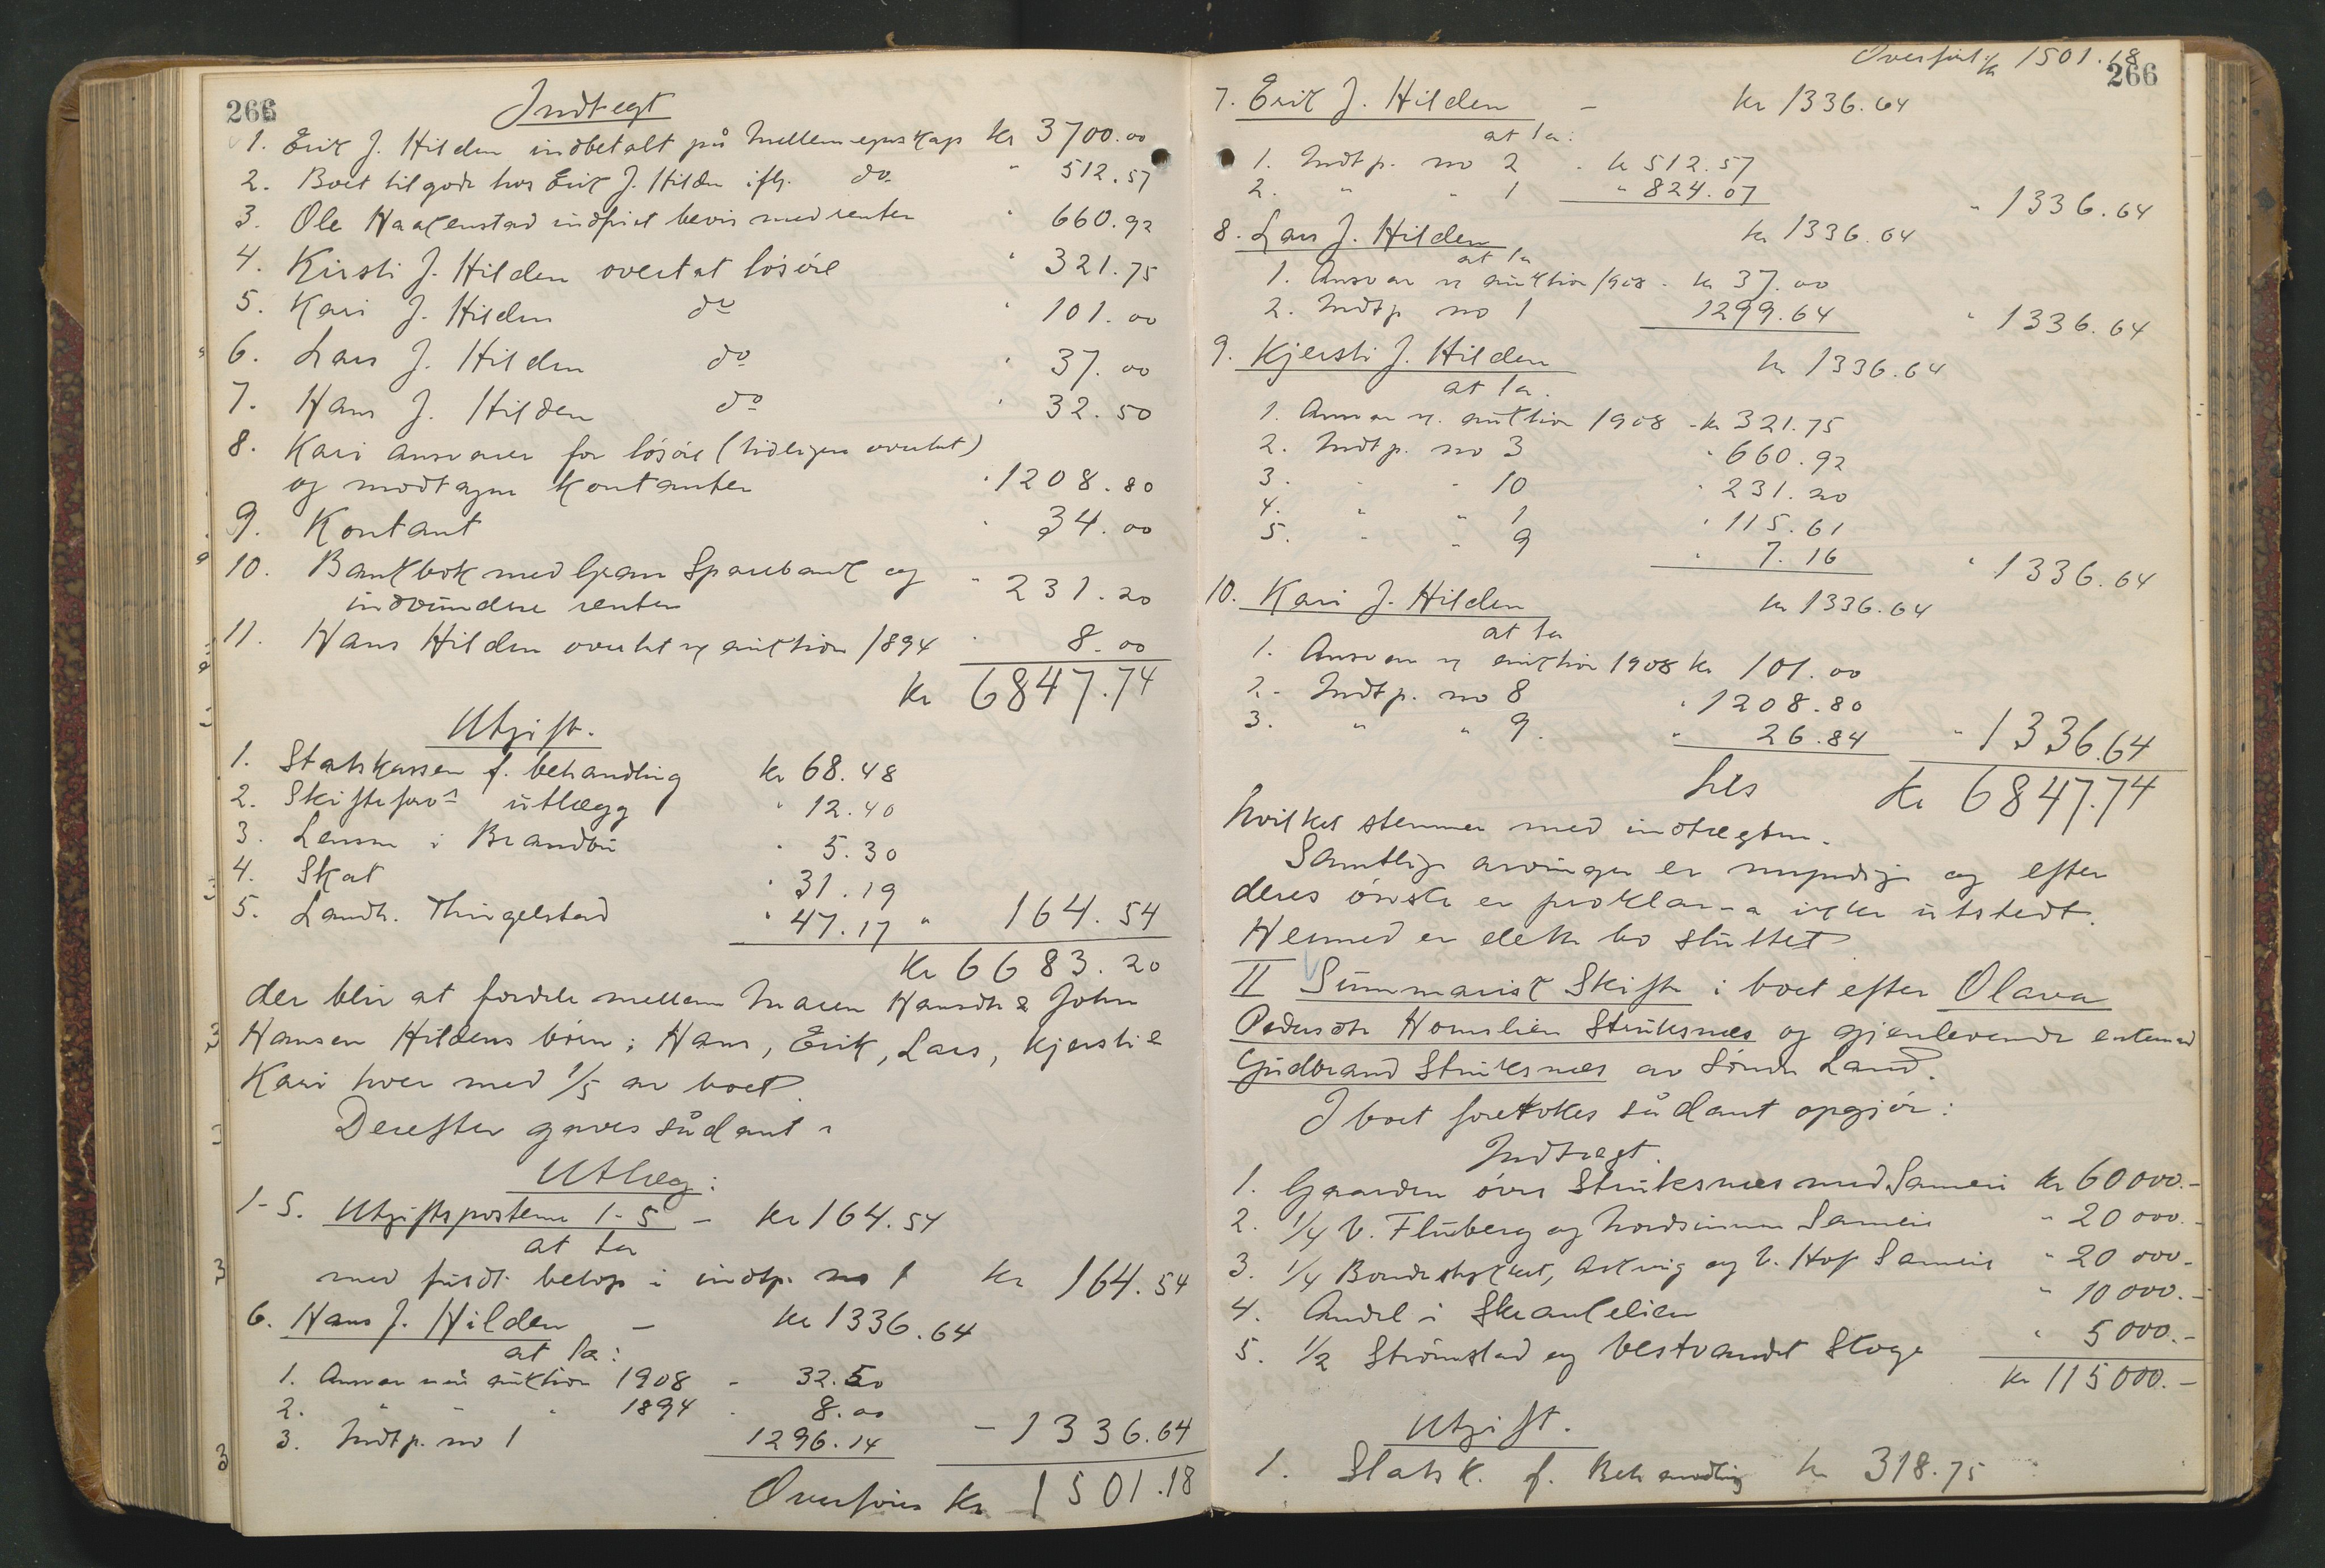 266
Indtægt
1. Erik J. Hilden indbetalt på mellemregnskap kr 3700.00
2. Boet tilgode hos Erik J. Hilden ifl. do " 512.57
3. Ole Haakenstad indfriet bevis med renter " 660.92
4. Kirsti J. Hilden overtat løsøre " 321.75
5. Kari J. Hilden do " 101.00
6. Lars J. Hilden do " 37.00
7. Hans J. Hilden do " 32.50
8. Kari ansvarer for løsøre (tidligere overtat)
og modtagne kontanter " 1208.80
9. Kontant " 34.00
10. Bankbok med Gran Sparebank og " 231.20
indvundne renter
11. Hans Hilden overtat v auktion 1894 " 8.00
kr 6847.74
Utgift.
1. Statskassen f. behandling kr 68.48
2. Skifteforv utlægg " 12.40
3. Lensm i Brandbu " 5.30
4. Skat " 31.19
5. Landh. Thingelstad " 47.17 " 164.54
Kr 6683.20
der blir at fordele mellem Maren Hansdtr & John
Hansen Hildens børn: Hans, Erik, Lars, Kjersti &
Kari hver med 1/5 av boet.
Derefter gjøres sådant
Utlæg:
1-5. Utgiftsposterne 1-5 - kr 164.54
at ta
med fuldt beløp i indtp. no 1 kr 164.54
6. Hans J. Hilden - kr 1336.64
at ta:
1. Ansvar auktion 1908 - 32.50
2. " " " 1894 - 8.00
3. Indtp. no 1 1296.14 - 1336.64
Overføres Kr 1501.18
Overført kr 1501.18
266
7. Erik J. Hilden - kr 1336.64
at ta:
1. Indtp. no 2 - kr 512.57
2. " " 1 " 824.07 " 1336.64
8. Lars J. Hilden kr 1336.64
at ta
1. Ansvar v auktion 1908 - kr 37.00
2. Indtp no 1 1299.64 " 1336.64
9. Kjersti J. Hilden kr 1336.64
at ta.
1. Ansvar v. auktion 1908 - kr 321.75
2. Indtp. no 3 " 660.92
3. " " 10 " 231.20
4. " " 1 " 115.61
5. " " 9 " 7.16 " 1336.64
10. Kari J. Hilden kr 1336.64
at ta
1. Ansvar v auktion 1908 kr 101.00
2. Indtp. no 8 " 1208.80
3. " " 9. " 26.84 " 1336.64
kr 6847.74
hvilket stemmer med indtægten.
Samtlige arvinger er myndige og efter
deres ønske er proklama ikke utstedt.
Hermed er dette bo sluttet
II Summarisk Skifte i boet efter Olava
Pedersdtr Homslien Struksnæs og gjenlevende enkemand
Gudbrand Struksnæs av Søndre Land.
I boet foretokes sådant opgjør:
Indtægt.
1. Gaarden øvre Struksnæs med Sameie kr 60000.-
2. 1/4 V. Fluberg og Nordsinnen Sameie " 20000.-
3. 1/4 Bondestykket, og V. Hof Sameie " 20000.-
4. Andel i " 10000.-
5. 1/2 Strømstad og Vestvandet Skoge " 5000.-
kr 115000.-
Utgift.
1. Statsk. f. Behandling kr 318.75